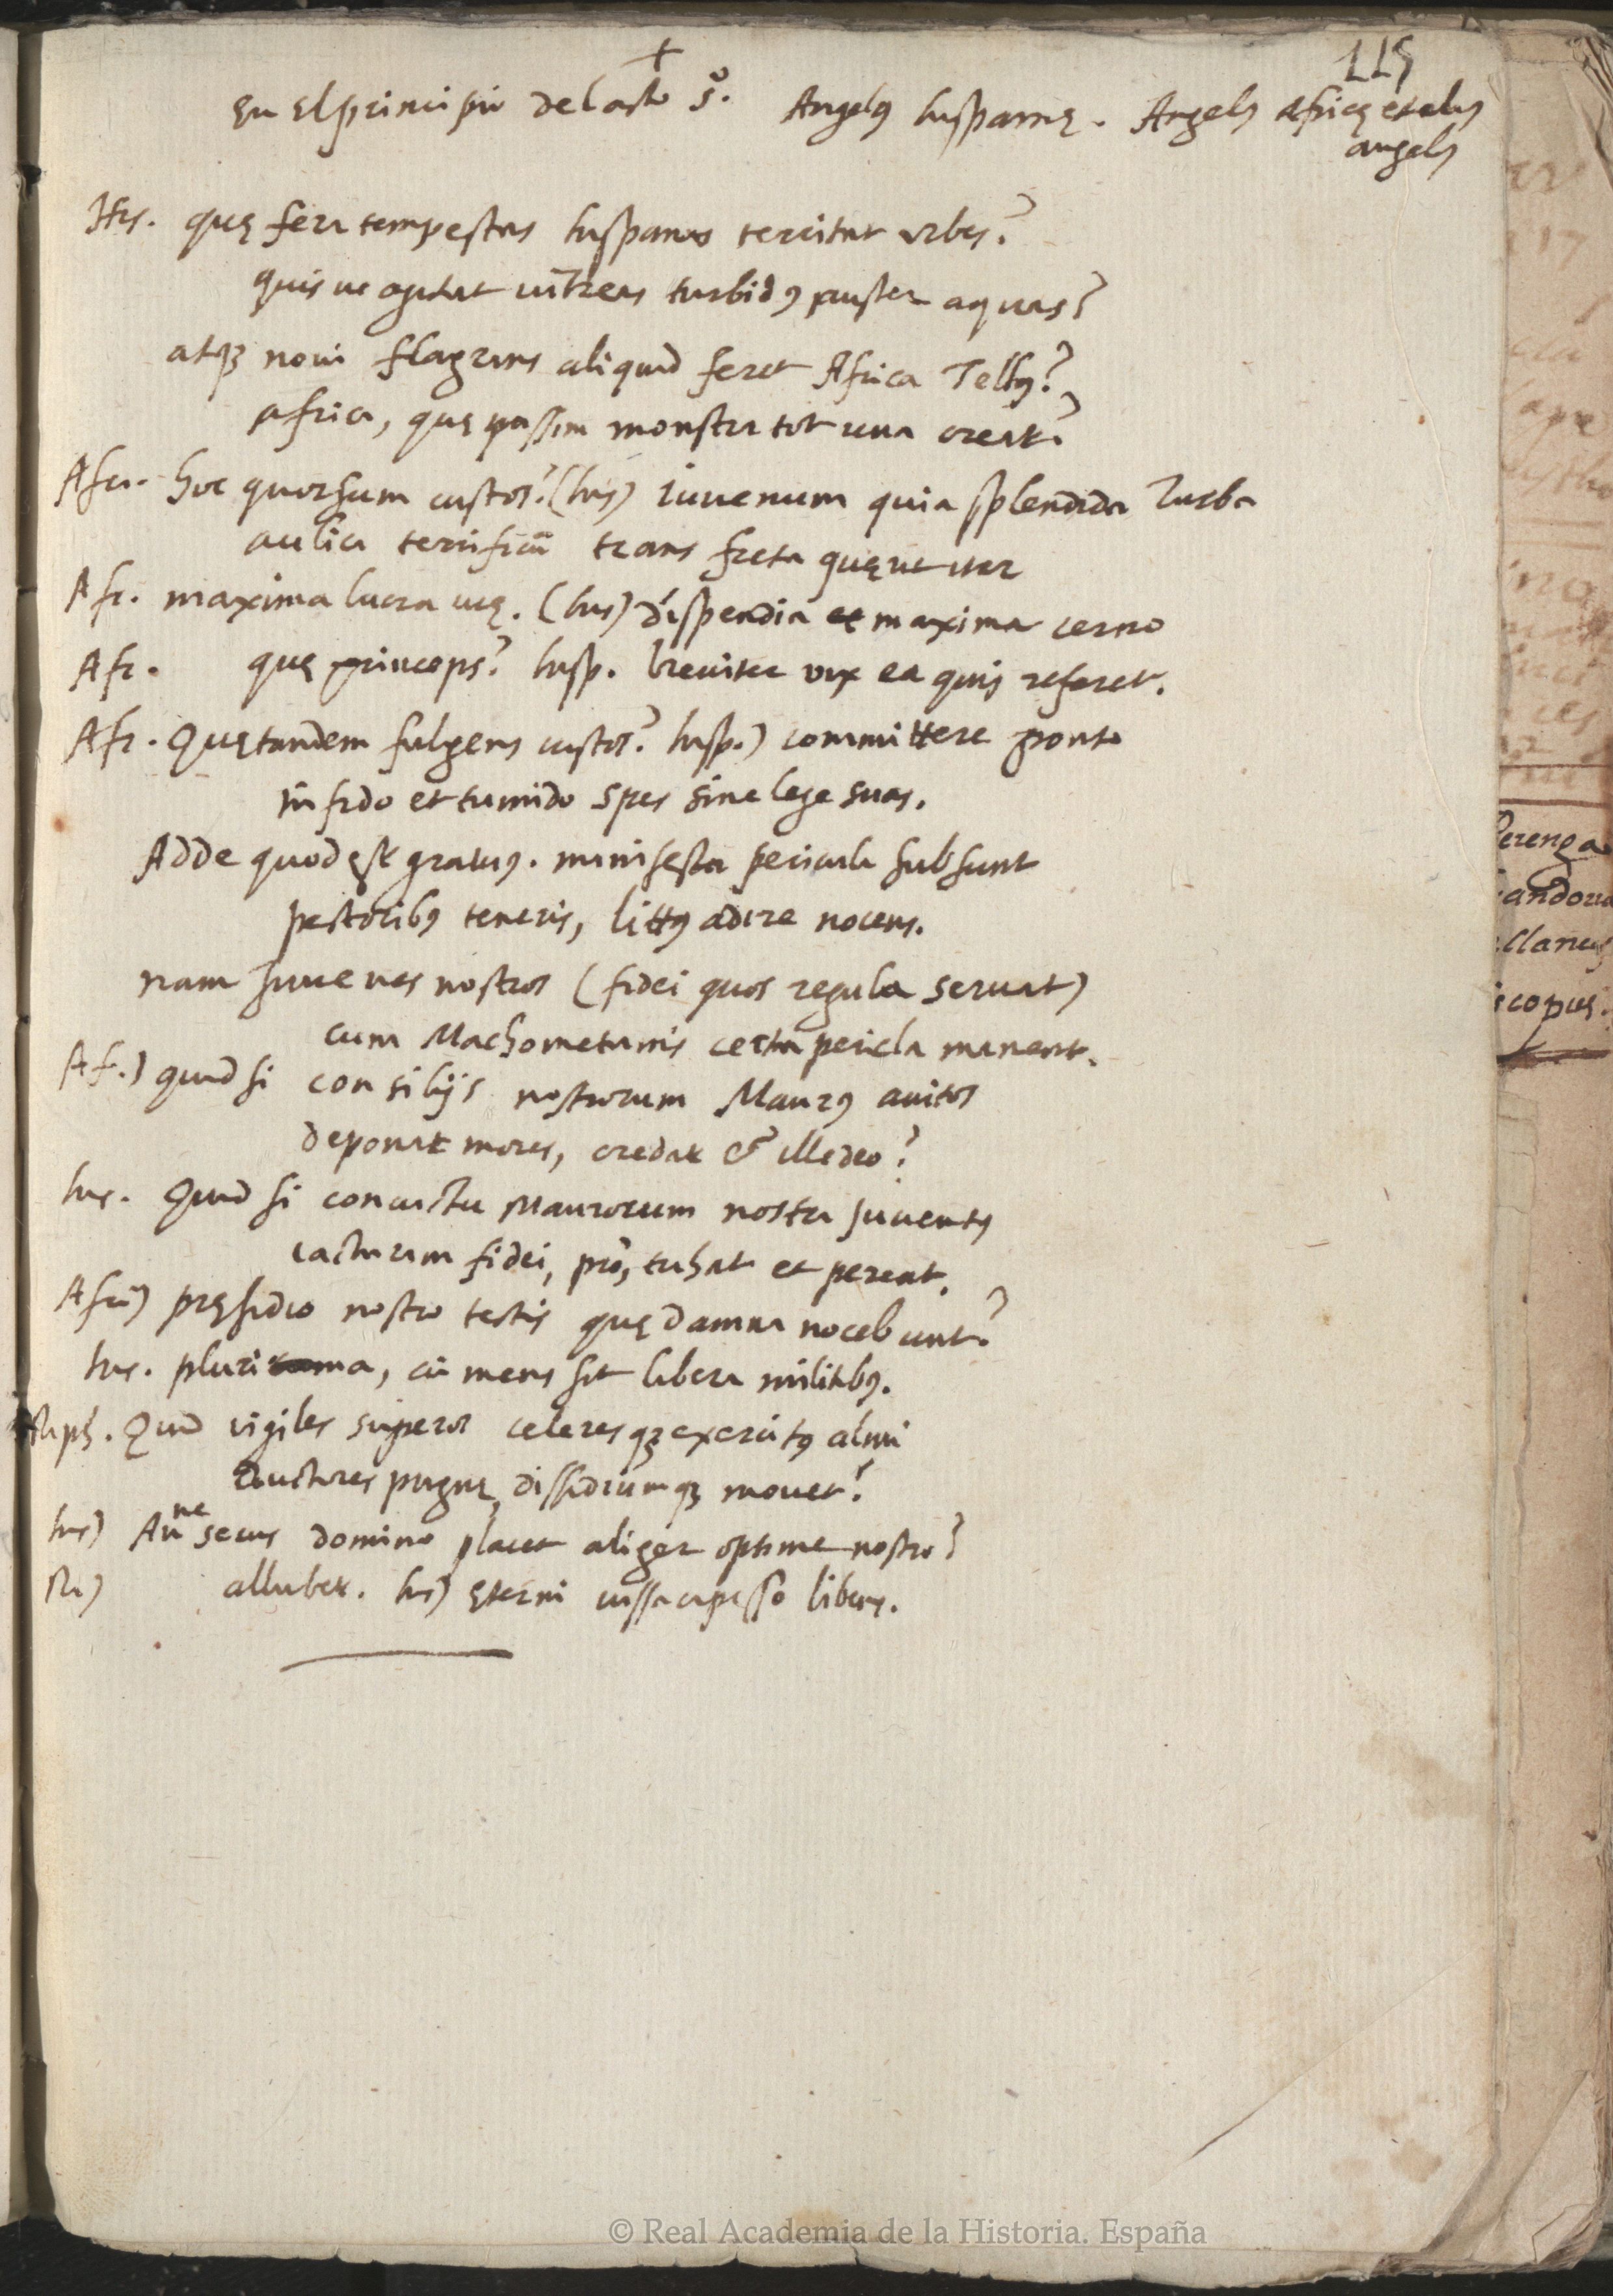 115
+
En el principio del acto 5º. Angelꝰ hispanię. Angelꝰ Africę et aliꝰ
angelꝰ
His. quę fera tempestas hispanas territat vrbes?
quis ue agitat uitreas turbidꝰ auster aquas?
atqȝ noui flagrans aliquid feret Africa Tellꝰ?
africa, quę passim monstra tot una creat?
Afri. hoc quorsum custos? (his) iuuenum quia splendida Turba
aulica terrificū trans freta quęrit iter
Afr. maxima lucra uię. (his) dispendia et maxima cerno
Afr. quę princeps? hisp. breuiter vix ea quis referet.
Afr. Quę tandem fulgens custos? hisp.) committere ponto
infido et tumido spes sine lege suas.
Adde quod est grauiꝰ. manifesta pericula subsunt
pectoribꝰ teneris, littꝰ adire nocens.
nam Juuenes nostros (fidei quos regula seruat)
cum Machometanis certa pericla manent.
Af.) quid si consilijs nostrorum Maurꝰ auitos
deponat mores, credat & ille deo?
his. Quid si conuictu Maurorum nostra juuentꝰ
iacturam fidei, pro, subat et pereat.
Afri) pręsidio nostro tectis quę damna nocebunt?
his. plurima, cū mens sit libera militibꝰ.
Quid vigiles superos celeresqȝ exercitꝰ almi
ductores pugnę dissidiumqȝ mouet?
his) Anne secus domino placet aliger optime nostro?
allubet. his) ęterni iussa capesso libens.
© Real Academia de la Historia. España